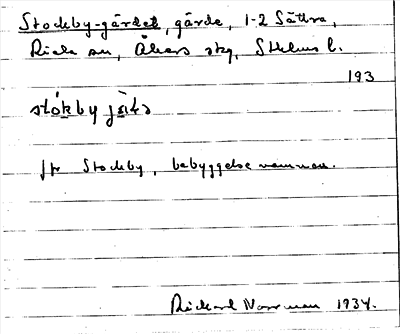 Stockby-gärdet, gärde, 1-2 Sättra,
Riala sn, Åkers skg, Sthlms l.
193
stókby
jfr Stockby, bebyggelsenamnen.
Rickard Norrman 1934.